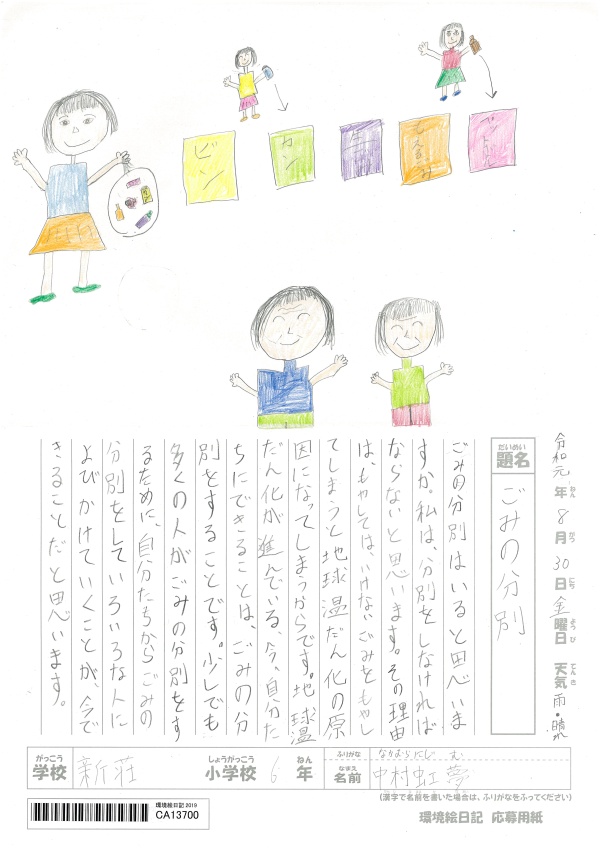 ビン
カン
生
もえるごみ
ペットボトル
令和元年8月30日金曜日 天気 雨・晴れ
ねん
がつ
にち
ようび
てんき
だいめい
題名
ごみの分別
ごみの分別はいると思いま
すか。私は、分別をしなければ
ならないと思います。その理由
は、もやしては、いけないごみをもやし
てしまうと地球温だん化の原
因になってしまうからです。地球温
だん化が進んでいる、今、自分た
ちにできることは、ごみの分
別をすることです。少しでも
多くの人がごみの分別をす
るために、自分たちからごみの
分別をしていろいろな人に
よびかけていくことが、今で
きることだと思います。
がっこう
学校 新荘
しょうがっこう
小学校 6
ねん
年
ふりがな なかむらにじむ
なまえ
名前 中村虹夢
(漢字で名前を書いた場合は、ふりがなをふってください)
環境絵日記 2019
CA13700
環境絵日記 応募用紙